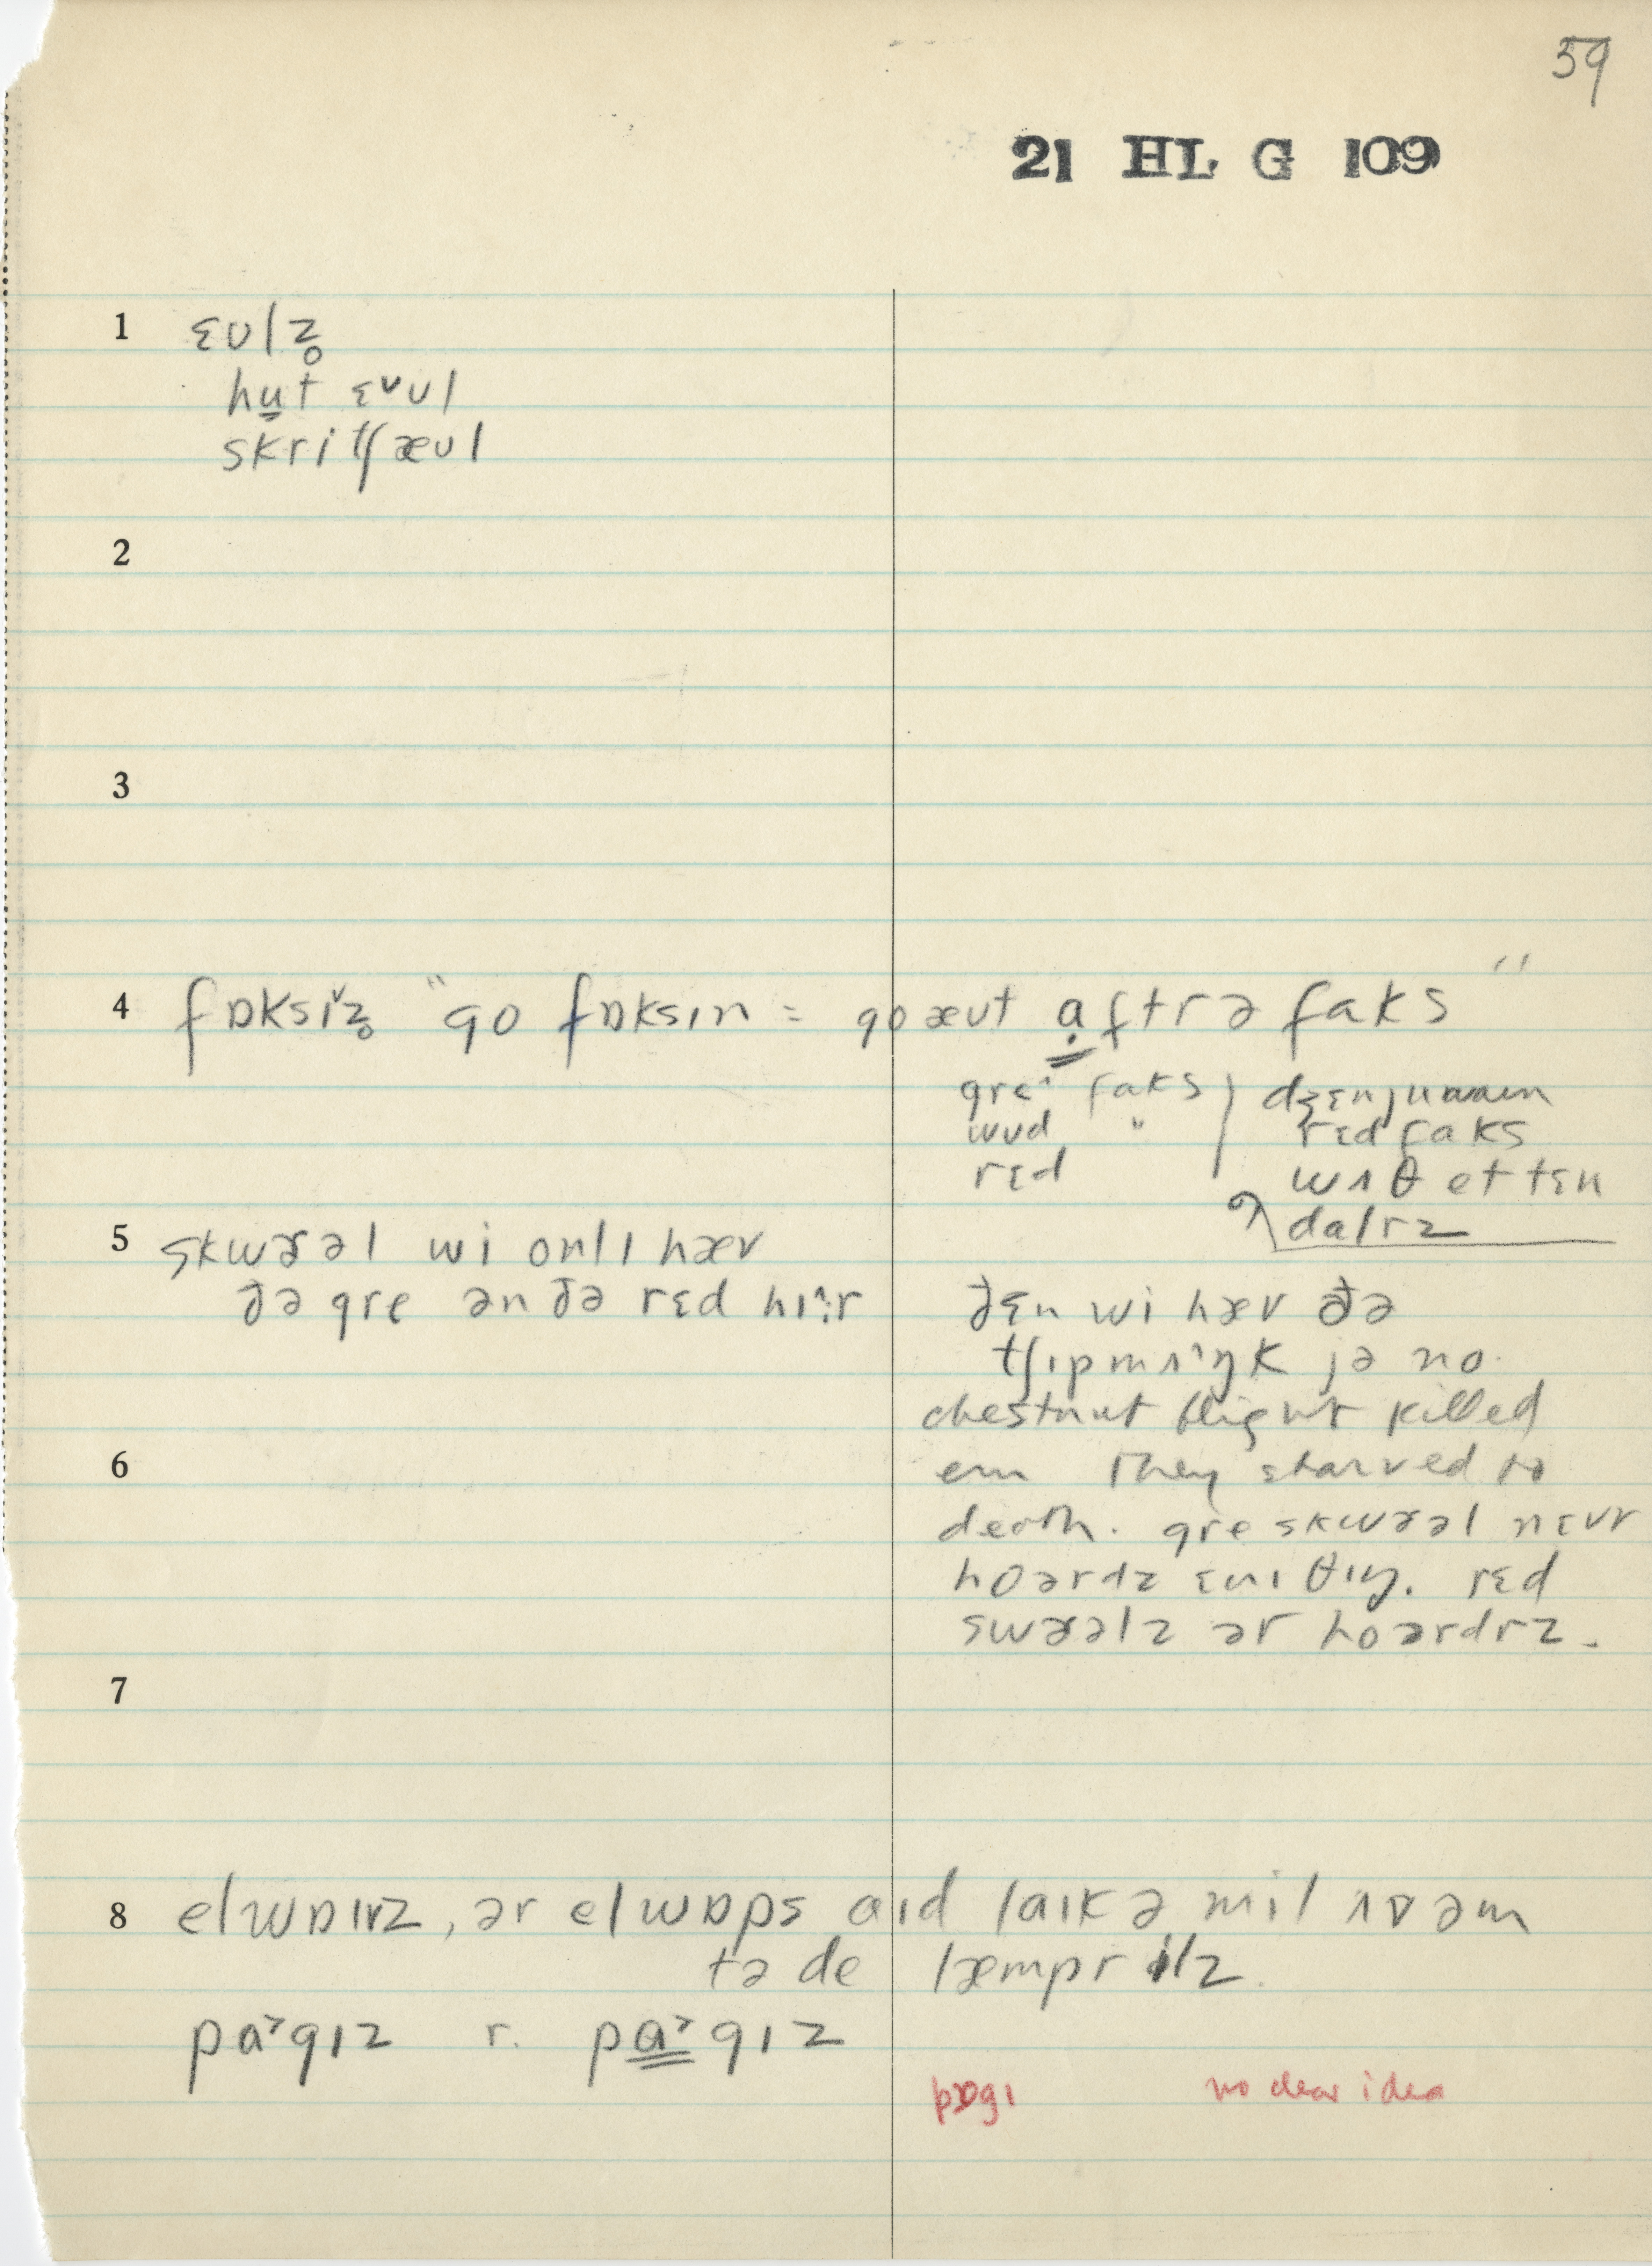 59
21 HL G 109
1 ɛʊlz̥
hu̱t ɛᵛʊl
skritʃæʊl
2
3
4 fɒksɪ̌z̥ "go fɒksɪn = go æʊt a̤ftr ə faks"
gre^ faks
wʊd "
rɛd
dʒɛnjuwaɪn
rɛd faks
wʌθ et tɛn
dalrz
5 skwɤəl wi onlɪ hæv
ðə gre ən ðə rɛd hɪ^r
ðɛn wi hæv ðə
tʃɪpmʌ^ŋk jə no.
chestnut blight killed
6 em They starved to
death. gre skwɤəl nɛvr
hoərdz ɛnɪθɪŋ. rɛd
swɤəlz ər hoərdrz.
7
8 elwɒɪvz, ər elwɒps aɪd laɪk ə mil ʌv əm
tə de læmpr ilz.
pa˃gɪz r. pa̳˃gɪz
pɒgɪ no clear idea